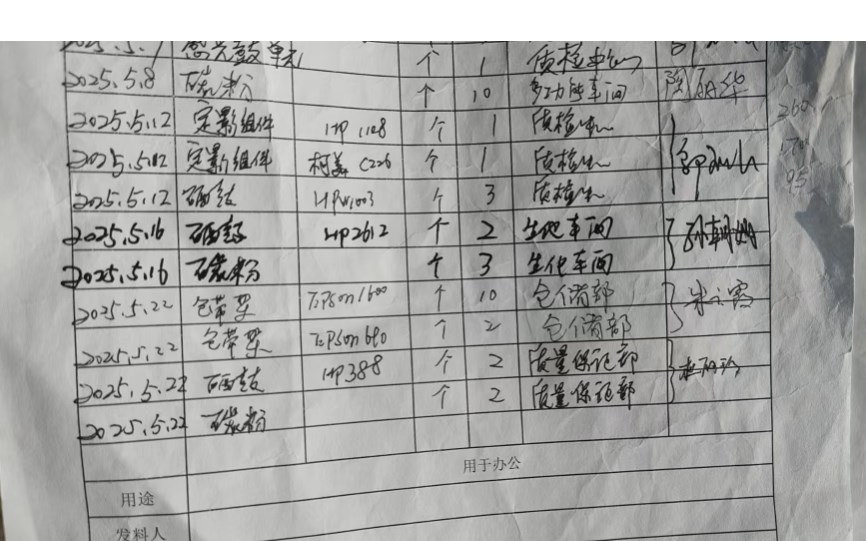 感光鼓单元 个 1 质检中心
2025.5.8 碳粉 个 10 多功能车间
2025.5.12 定影组件 HP 1108 个 1 质检中心
2025.5.12 定影组件 柯美 C226 个 1 质检中心
2025.5.12 硒鼓 HPW1003 个 3 质检中心
2025.5.16 硒鼓 HP2612 个 2 生化车间
2025.5.16 碳粉 个 3 生化车间
2025.5.22 色带架 Epson1600 个 10 仓储部
2025.5.22 色带架 Epson 690 个 2 仓储部
2025.5.22 硒鼓 HP388 个 2 质量保证部
2025.5.22 碳粉 个 2 质量保证部
用于办公
用途
发料人